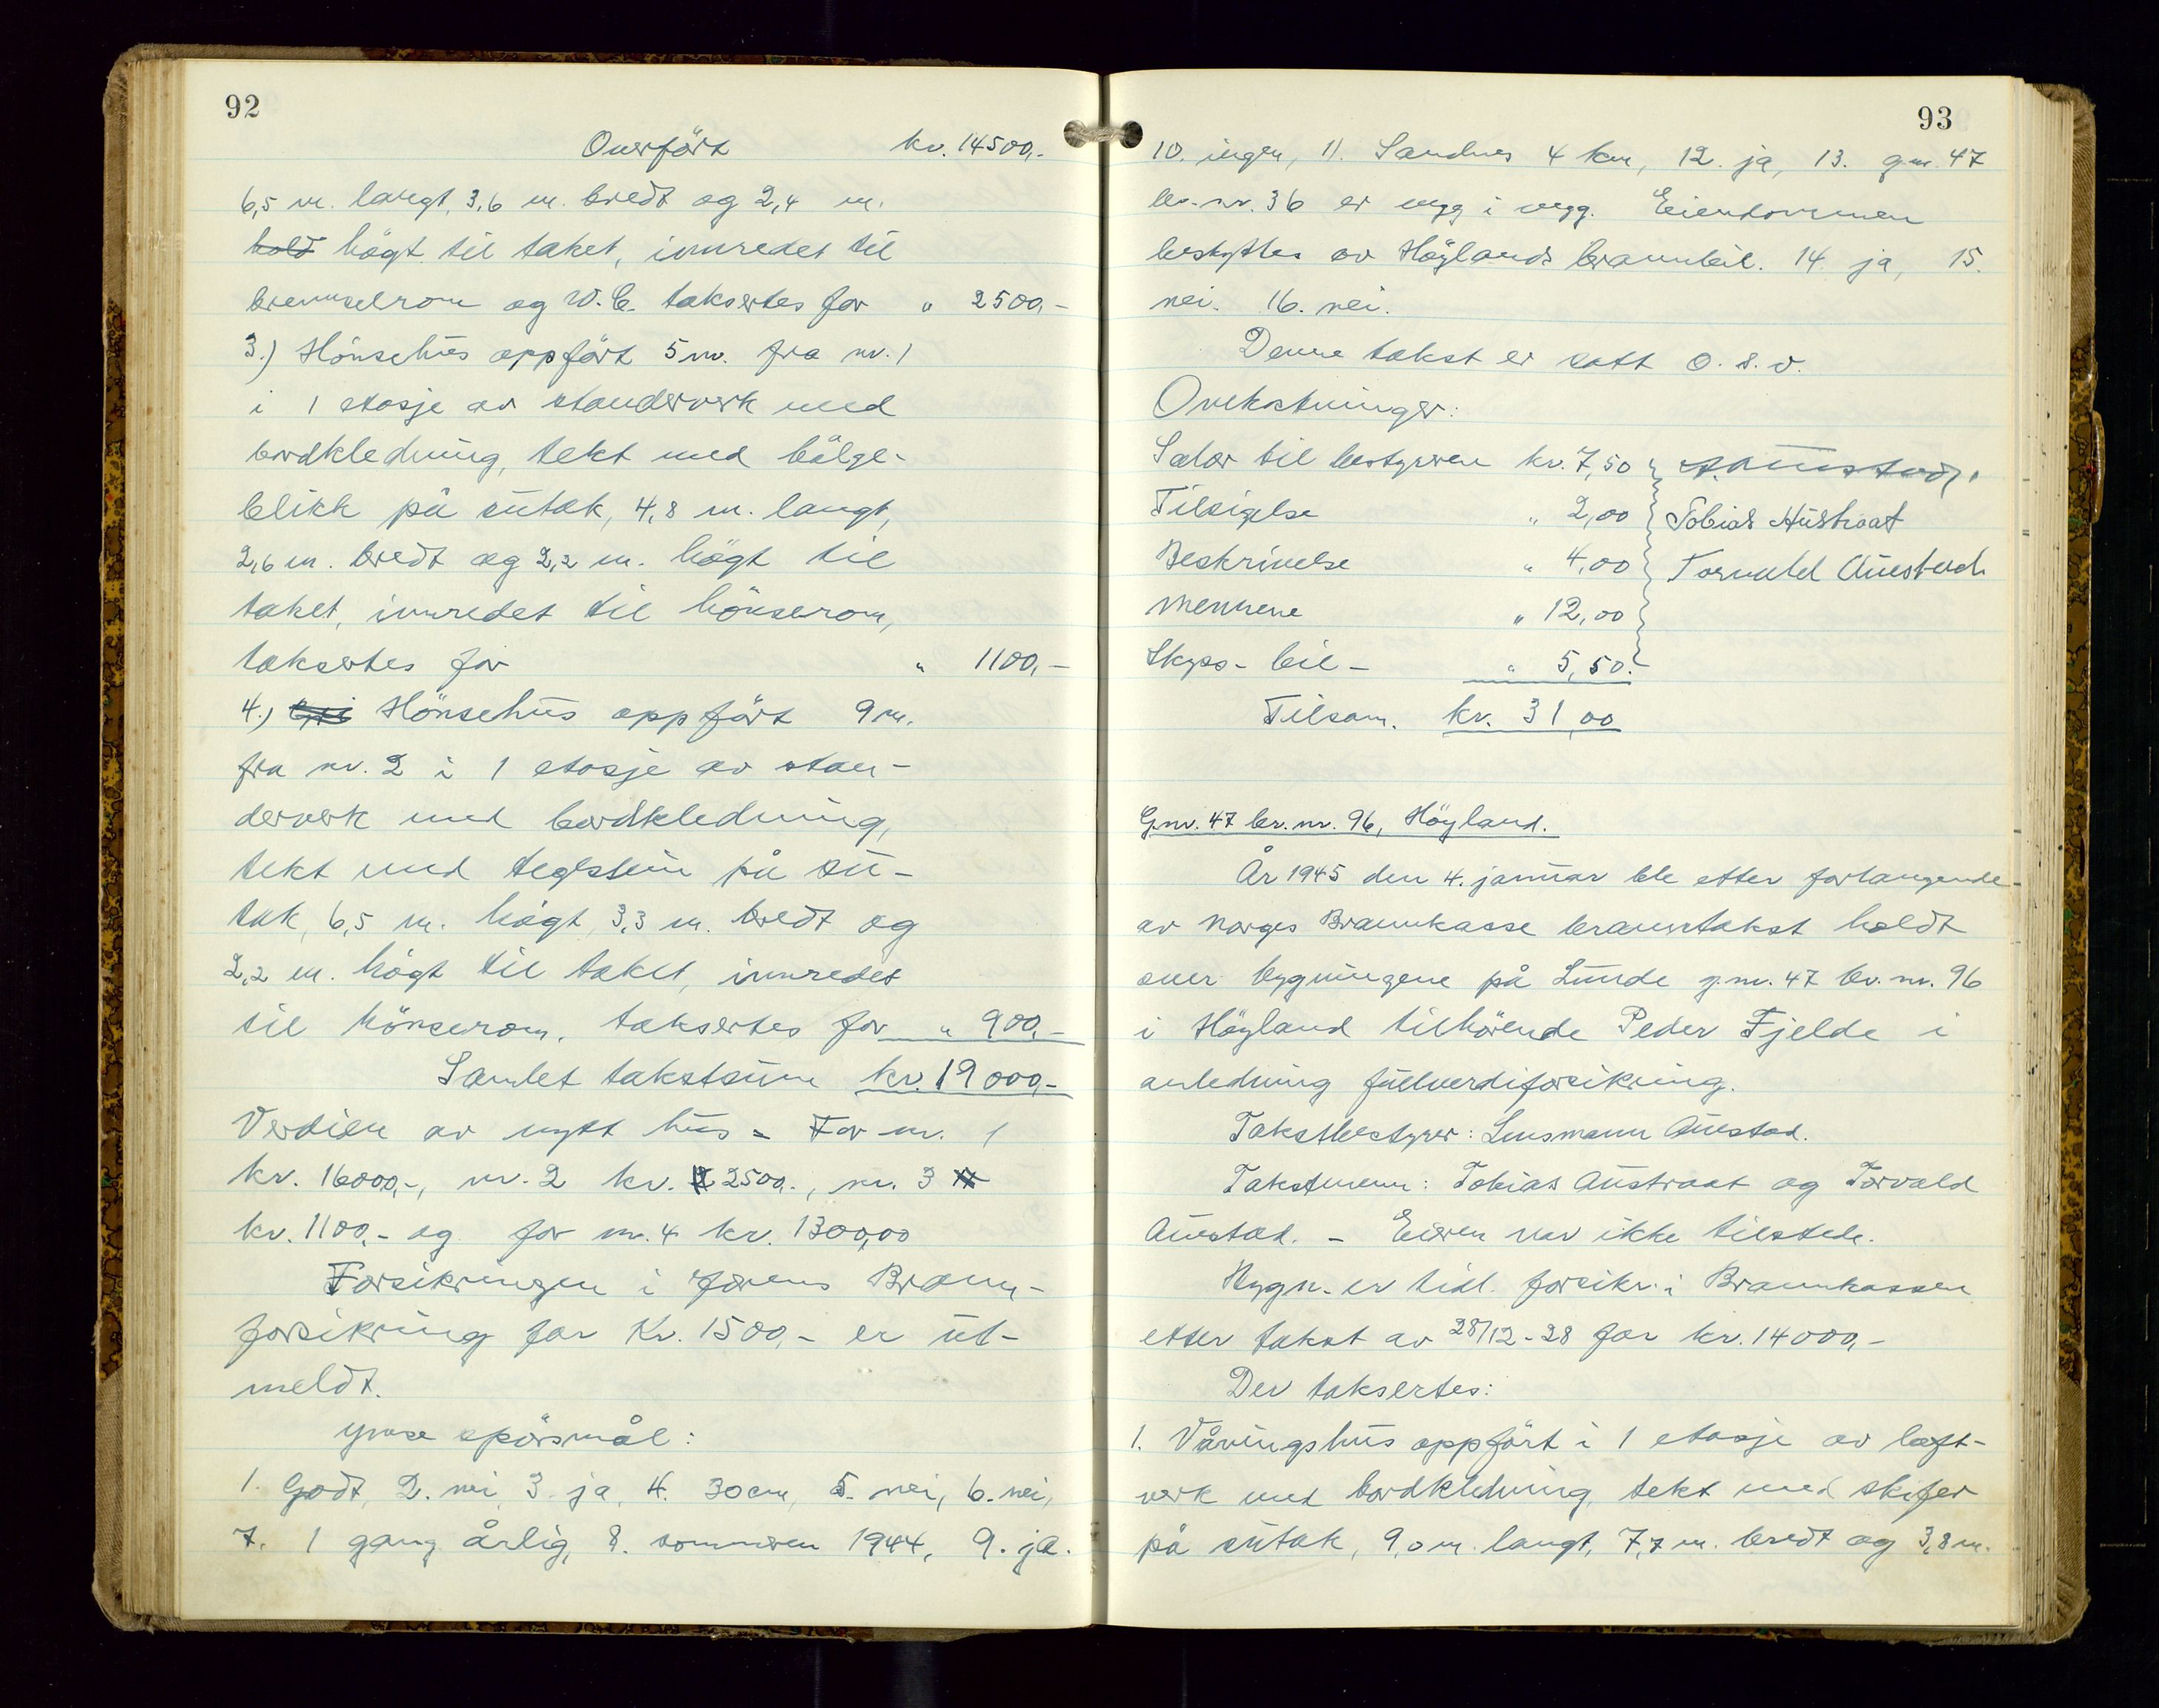 92
Overført kr. 14500,-
6,5 m. langt, 3,6 m. bredt og 2,4 m.
høgt til taket, innredet til
brenselrom og W.C. taksertes for " 2500,-
3.) Hönsehus oppfört 5 m. fra nr. 1
i 1 etasje av standerverk med
bordkledning, tekt med bölge-
blikk på sutak, 4,8 m. langt,
2,6 m. bredt og 2,2 m. högt til
taket, innredet til hönserom,
taksertes for " 1100,-
4.) Hönsehus oppfört 9 m.
fra nr. 2 i 1 etasje av stan-
derverk med bordkledning,
tekt med teglstein på su-
tak, 6,5 m. högt, 3,3 m. bredt og
2,2 m. högt til taket, innredet
til hönserom, taksertes for " 900,-
Samlet takstsum kr. 19000,-
Verdien av nytt hus = For nr. 1
kr. 16000,-, nr. 2 kr. 2500,-, nr. 3
kr. 1100,- og for nr. 4 kr. 1300,00
Forsikringen i Jærens Brann-
forsikring for Kr. 1500,- er ut-
meldt.
Ymse spörsmål:
1. Godt, 2. nei, 3. ja, 4. 30 cm, 5. nei, 6. nei,
7. 1 gang årlig, 8. sommeren 1944, 9. ja.
93
10. ingen, 11. Sandnes 4 km, 12. ja, 13. g.nr. 47
br.nr. 36 er vegg i vegg. Eiendommen
beskyttes av Höylands brannbil. 14. ja, 15.
nei. 16. nei.
Denne takst er satt o.s.v.
Omkostninger:
Salær til bestyreren kr. 7,50
Tilsigelse " 2,00 Tobias Austraat
Beskrivelse " 4,00 Torvald Auestad
Mennene " 12,00
Skyss - bil - " 5,50.
Tilsam. kr. 31,00
G.nr. 47 br.nr. 96, Höyland.
År 1945 den 4. januar ble etter forlangende
av Norges Brannkasse branntakst holdt
over bygningene på Lunde g.nr. 47 br.nr. 96
i Höyland tilhörende Peder Fjelde i
anledning fullverdiforsikring.
Takstbestyrer: Lensmann Auestad.
Takstmenn: Tobias Austraat og Torvald
Auestad. - Eieren var ikke tilstede.
Bygn. er tidl. forsikr. i Brannkassen
etter takst av 28/12-28 for kr. 14000,-
Der taksertes:
1. Våningshus oppfört i 1 etasje av laft-
verk med bordkledning, tekt med skifer
på sutak, 9,0 m. langt, 7,7 m. bredt og 3,8 m.